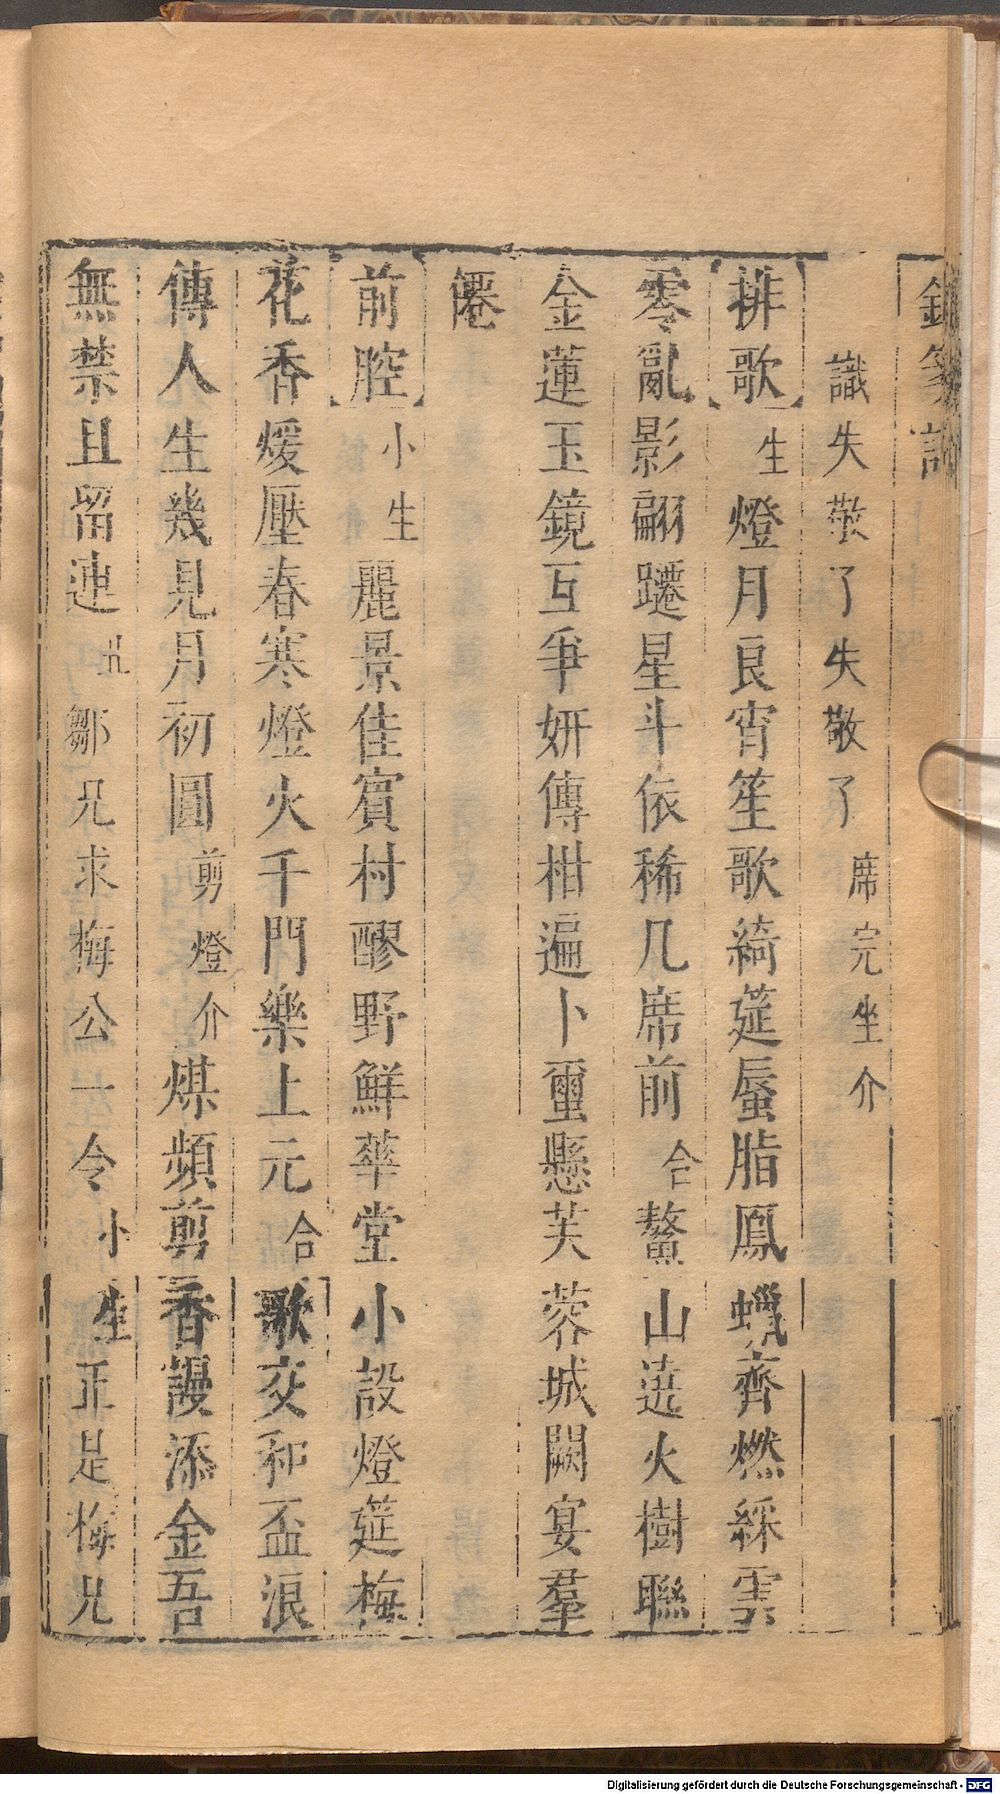 識失敬了失敬了席完坐介
排歌生燈月良宵笙歌綺筵蜃脂鳳蠟齊燃綵雲
零亂影翩躚星斗依稀几席前合鰲山遶火樹聯
金蓮玉鏡互爭妍傳柑遍卜璽懸芙蓉城闕宴羣
僊
前腔小生麗景佳賓村醪野鮮華堂小設燈筵梅
花香煖壓春寒燈火千門樂上元合歌交和盃浪
傳人生幾見月初圓剪燈介煤頻剪香謾添金吾
無禁且留連丑鄒兄求梅公一令小生正是梅兄
Digitalisierung gefördert durch die Deutsche Forschungsgemeinschaft - DFG